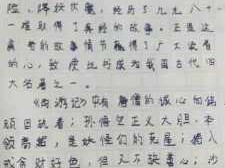 险，降妖伏魔，经历了九九八十一
难取得了真经的故事。正是这
奇的故事情节赢得了广大读者
的心，致使这书成为我国古代四
大名著之一。
《西游记》中有唐僧的诚心向佛
顽固执著；孙悟空正义大胆，本
领高超，是妖怪们的克星；猪八
戒贪财好色，但又不缺善心；沙